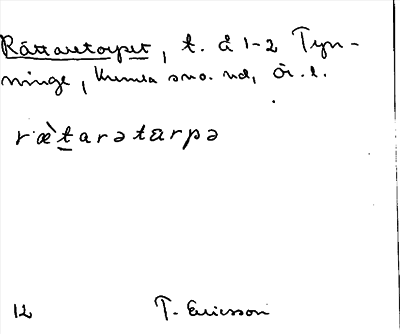 Rättaretorpet, t. å 1-2 Tyn-
ninge, Kumla sno. nd, Ör. l.
ræ̀tarətɑrpə
12 T. Ericsson